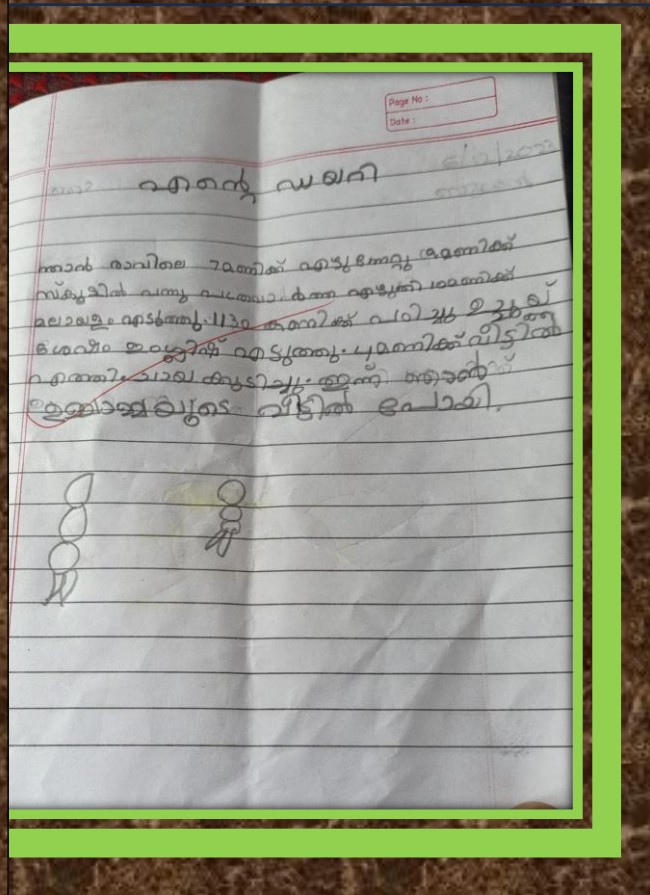 Page No :
Date :
6/12/2022
എന്റെ ഡയറി
ഞാൻ രാവിലെ 7മണിക്ക് എഴുന്നേറ്റു മണിക്ക്
സ്കൂളിൽ വന്നു എഴുതി 10മണിക്ക്
മലയാളം എടുത്തു. 1130 മണിക്ക് പഠിച്ചു ഉച്ചയ്ക്ക്
ശേഷം ഇംഗ്ലീഷ് എടുത്തു. 4മണിക്ക് വീട്ടിൽ
എത്തി. ചായ കുടിച്ചു. ഇന്ന് ഞാൻ
വീട്ടിൽ പോയി.